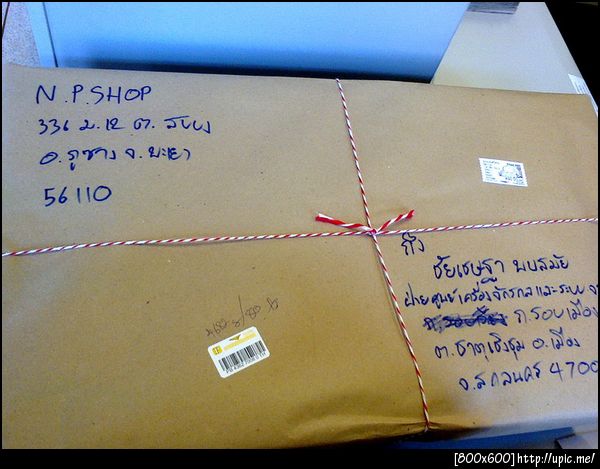 N.P.SHOP
336 ม.12 ต. สบบง
อ.ภูซาง จ.พะเยา
56110
ถึง
ชัยเชษฐา พบสมัย
ฝ่ายศูนย์เครื่องจักรกลและระบบ
ถ.รอบเมือง
ต.ธาตุเชิงชุม อ.เมือง
จ.สกลนคร 4700
[800x600] http://upic.me/